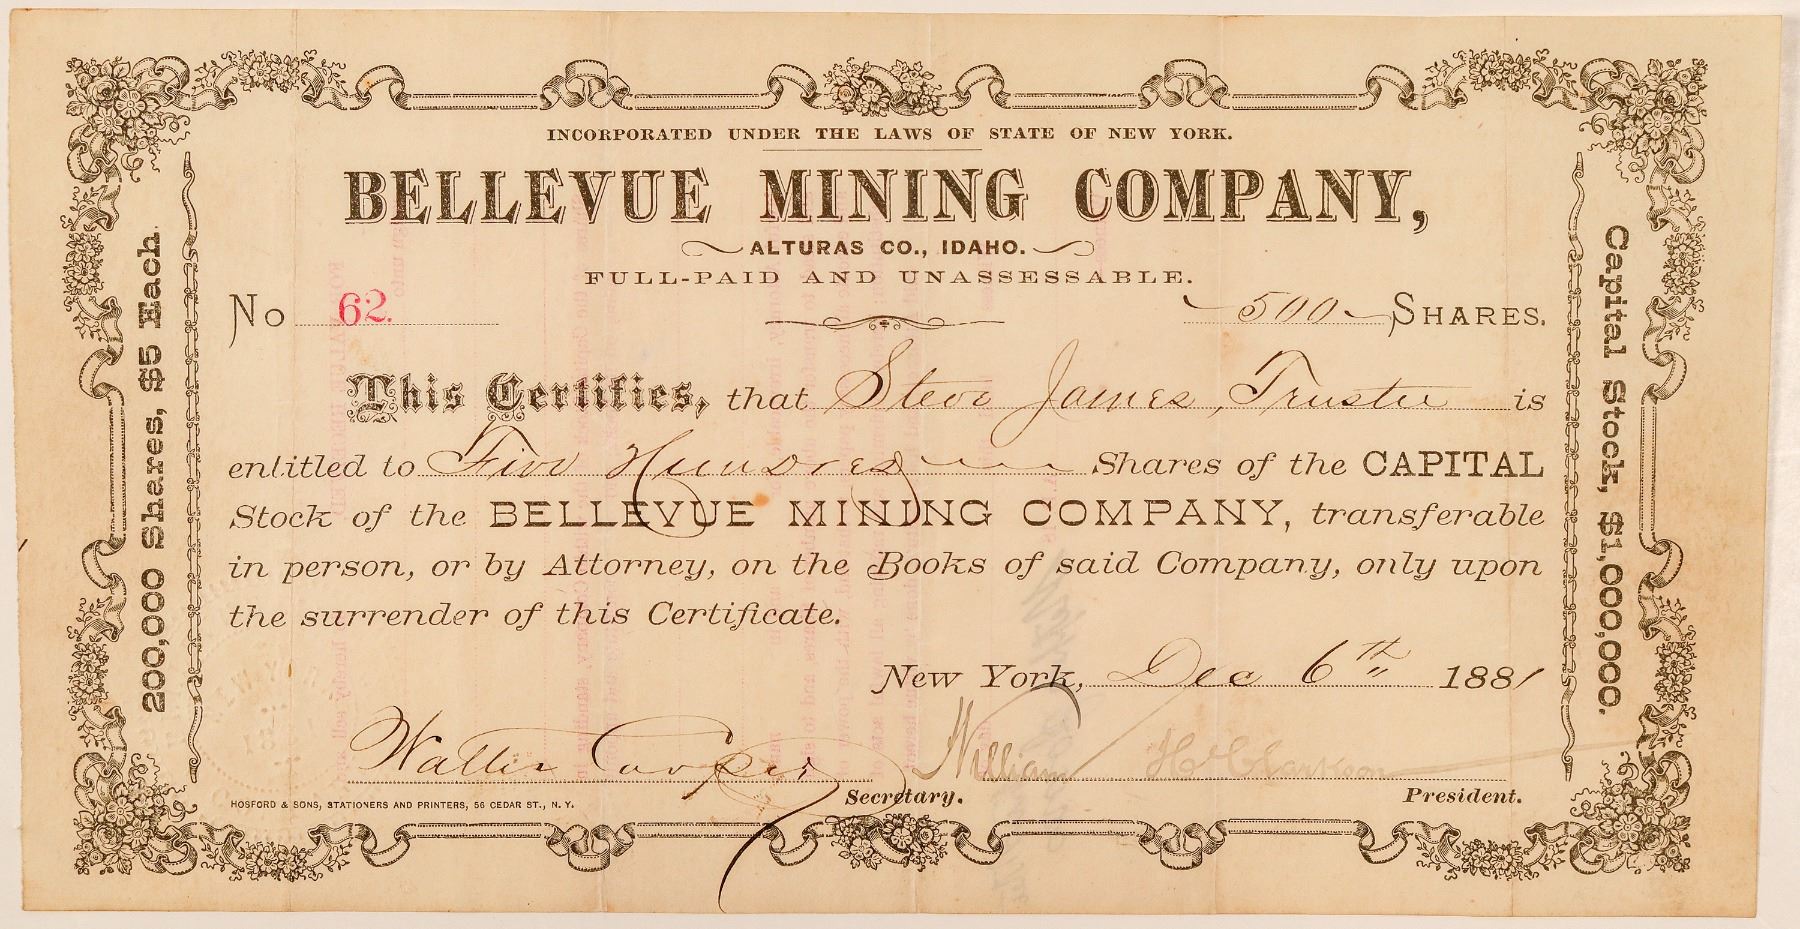 INCORPORATED UNDER THE LAWS OF STATE OF NEW YORK.
BELLEVUE MINING COMPANY,
ALTURAS CO., IDAHO.
FULL-PAID AND UNASSESSABLE.
No 62. 500 SHARES.
This Certifies, that Steve James, Trustee is
entitled to Five Hundred Shares of the CAPITAL
Stock of the BELLEVUE MINING COMPANY, transferable
in person, or by Attorney, on the Books of said Company, only upon
the surrender of this Certificate.
New York, Dec 6th 1881
Walter Cooper William H Clarkson
Secretary. President.
HOSFORD & SONS, STATIONERS AND PRINTERS, 56 CEDAR ST., N. Y.
200,000 Shares, $5 Each.
Capital Stock, $1,000,000.